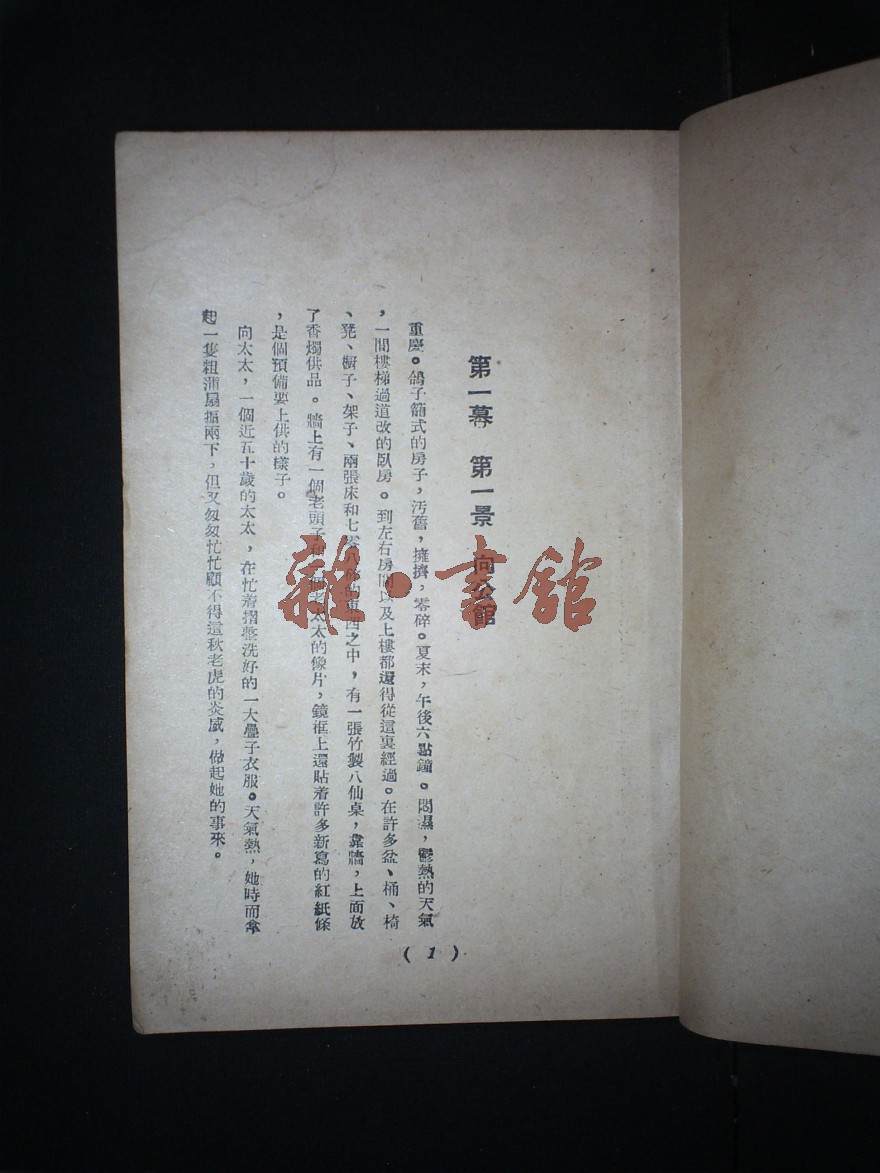 第一幕　第一景　向公館
重慶。鴿子籠式的房子，汚舊，擁擠，零碎。夏末，午後六點鐘。悶濕，鬱熱的天氣
，一間樓梯過道改的臥房。到左右房間以及上樓都還得從這裏經過。在許多盆、桶、椅
、凳、櫥子、架子、兩張床和七零八碎的東西之中，有一張竹製八仙桌，靠牆，上面放
了香燭供品。牆上有一個老頭子和一個老太太的像片，鏡框上還貼着許多新寫的紅紙條
，是個預備要上供的樣子。
向太太，一個近五十歲的太太，在忙着摺整洗好的一大疊子衣服。天氣熱，她時而拿
起一隻粗蒲扇搧兩下，但又匆匆忙忙顧不得這秋老虎的炎威，做起她的事來。
( 1 )
雜·書館